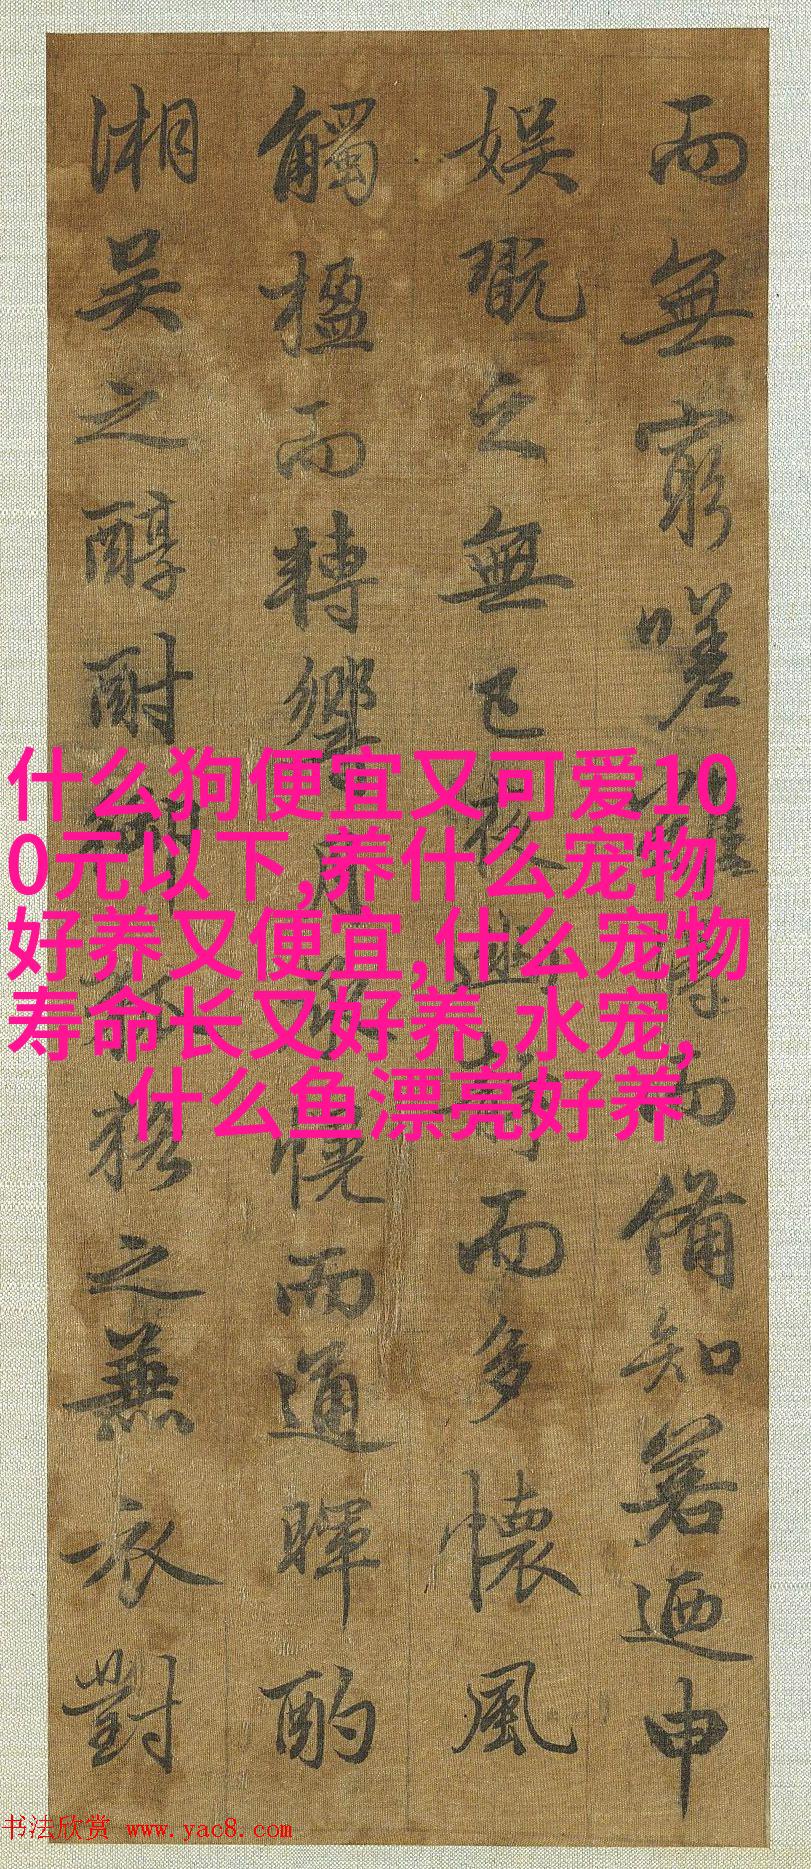 而無窮嗟難而備知若迺申
娛翫之無已夜而多懷風
觸楹而轉響月幌而通暉酌
湘吳之醇酎之蕪衣對
什么狗便宜又可爱10
0元以下,养什么宠物
好养又便宜,什么宠物
寿命长又好养,水宠,
什么鱼漂亮好养
书法欣赏 www.yac8.com